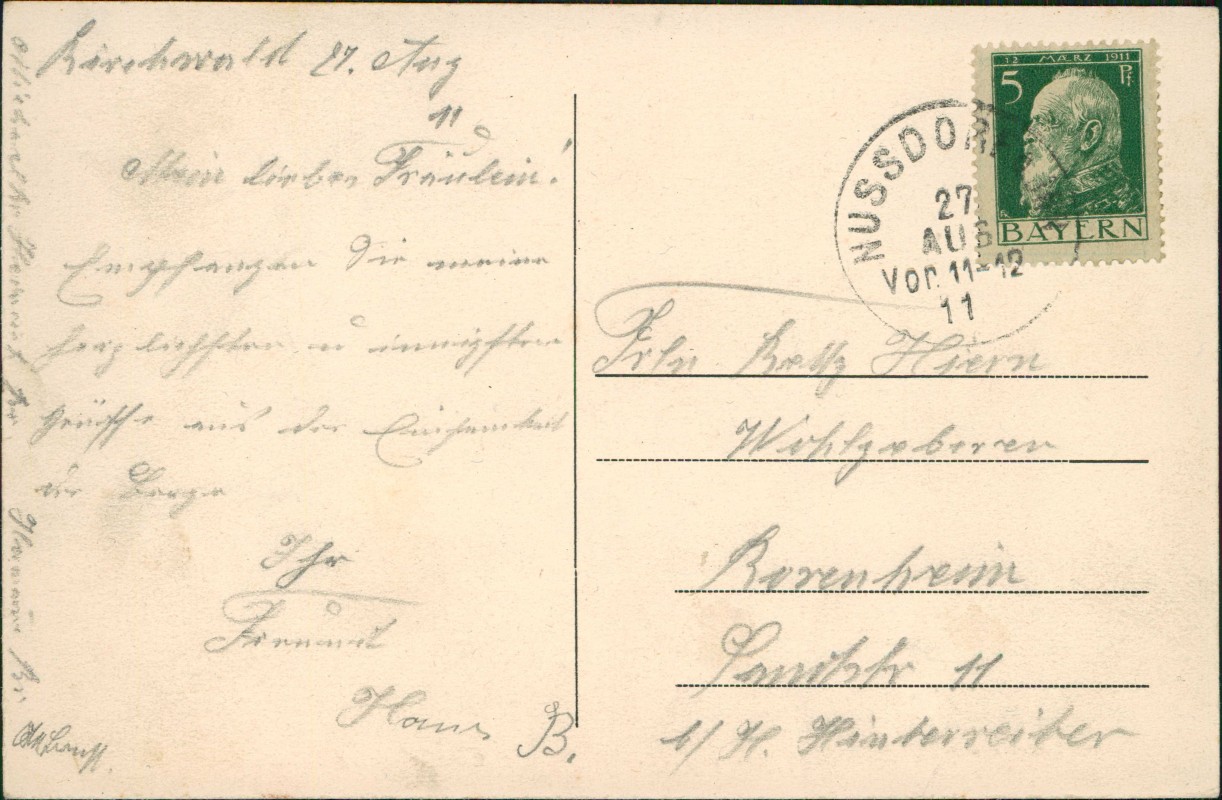 Kirchwald 27. Aug
11
Mein liebes Fräulein!
Empfangen Sie meine
herzlichsten u innigsten
Grüsse aus der Einsamkeit
der Berge
Ihr
Freund
Hans B.
12 MÆRZ 1911
5 Pf
BAYERN
NUSSDORF
27
AUG
Vor. 11-12
11
Frln Betty Hiern
Wohlgeboren
Rosenheim
11
b/ H. Hinterreiter